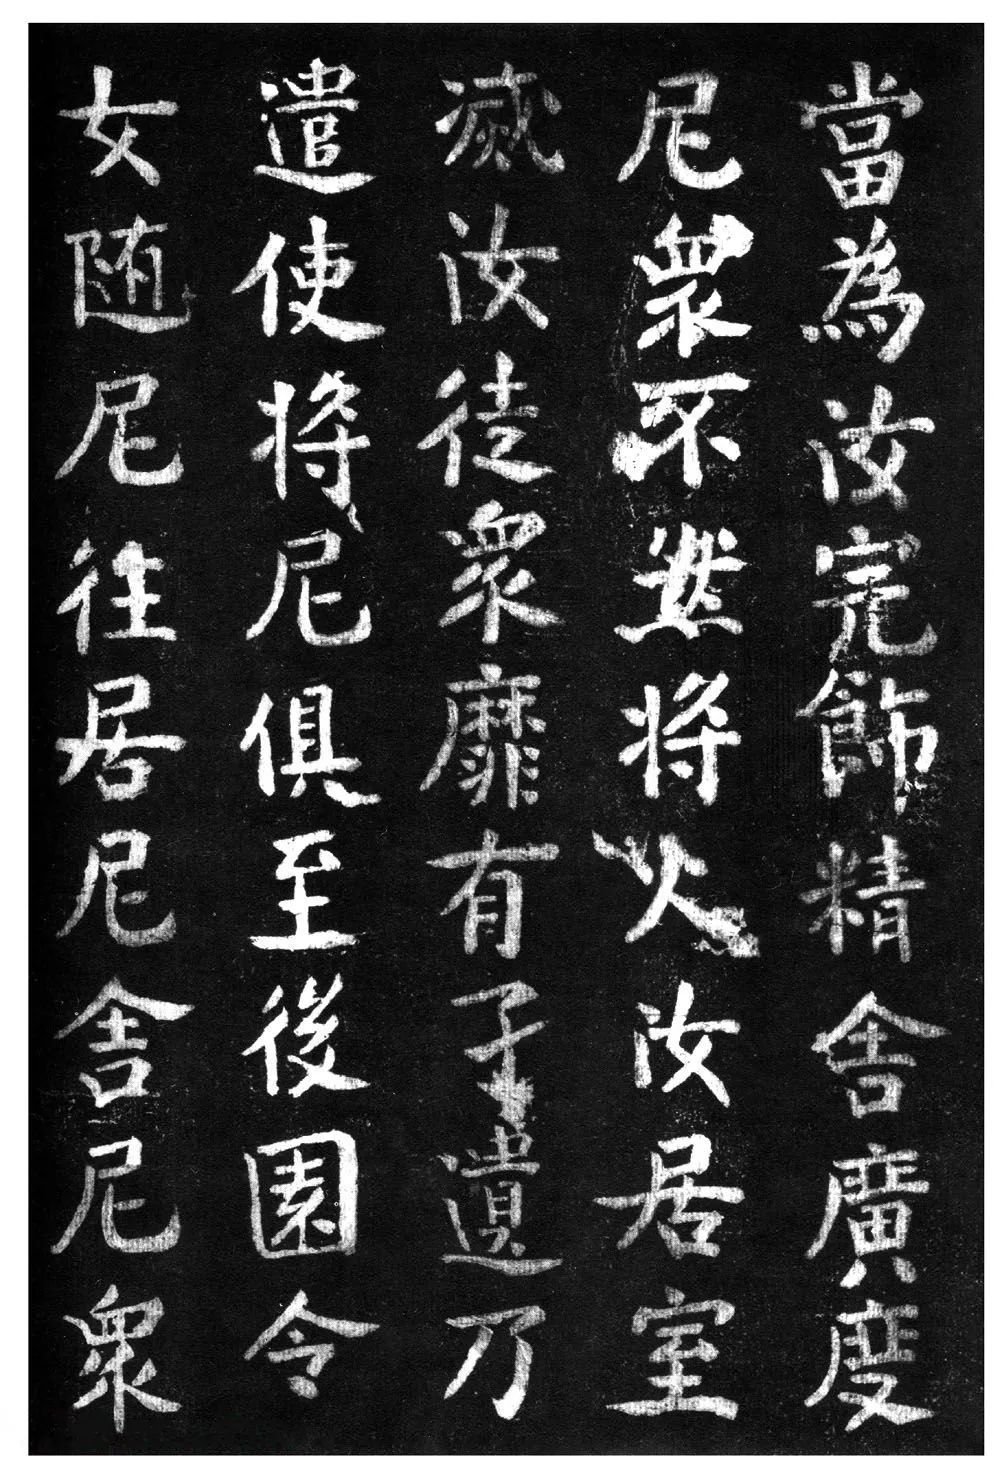 當為汝完飾精舍廣度
尼衆不然將火汝居室
滅汝徒衆靡有孑遺乃
遣使將尼俱至後園令
女随尼往居尼舍尼衆